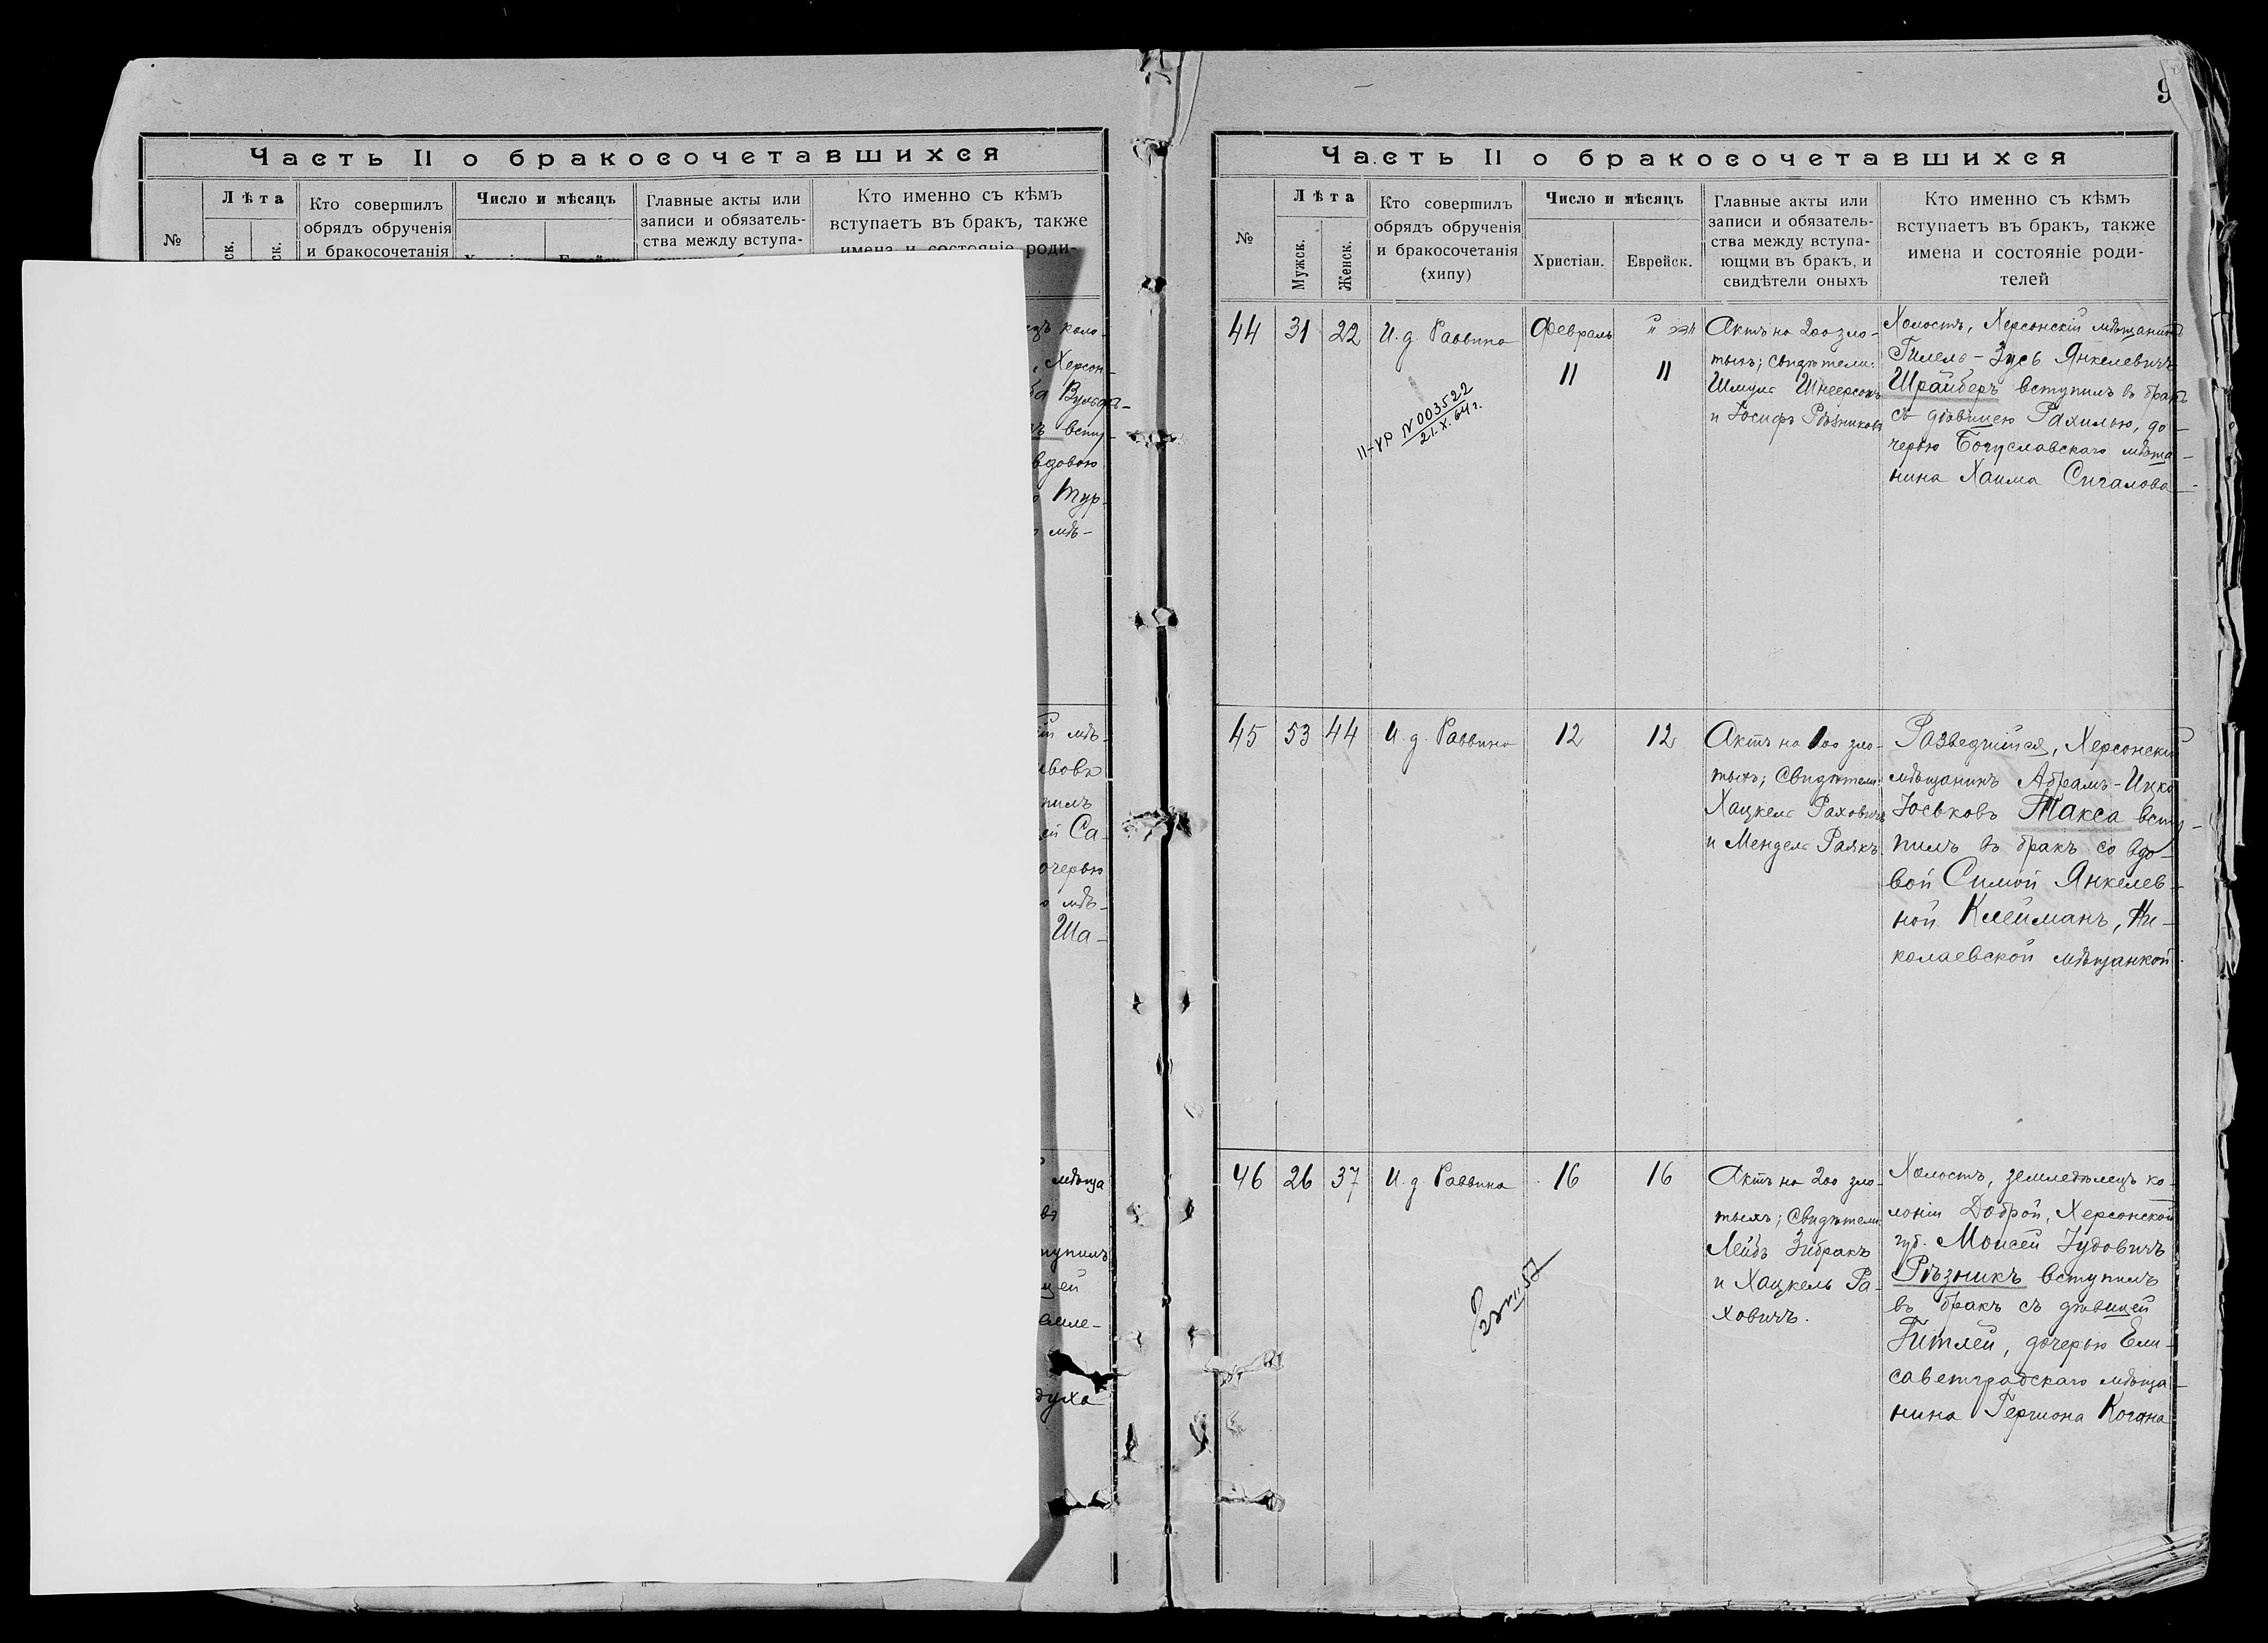 Часть II о бракосочетавшихся
№
Лѣта
Кто совершилъ
обрядъ обрученія
и бракосочетанія
Число и мѣсяцъ
Главные акты или
записи и обязатель-
ства между вступа-
Кто именно съ кѣмъ
вступаетъ въ бракъ, также
имена и состояніе роди-
коло-
Херсон-
Вульфъ-
всту-
вдовою
Тур-
мѣ-
мѣ-
Са-
очерью
мѣ-
Ша-
мѣща
9
Часть II о бракосочетавшихся
№
Лѣта
Мужск.
Женск.
Кто совершилъ
обрядъ обрученія
и бракосочетанія
(хипу)
Число и мѣсяцъ
Христіан.
Еврейск.
Главные акты или
записи и обязатель-
ства между вступа-
ющми въ бракъ, и
свидѣтели оныхъ
Кто именно съ кѣмъ
вступаетъ въ бракъ, также
имена и состояніе роди-
телей
44
31
22
И. д. Раввина
Февраль
11
11
II-УР №003522
21.X.64г.
Актъ на 200 зло-
тыхъ; Свидѣтели:
Шмуль Шнеерсонъ
и Іосифъ Рѣзниковъ
Холостъ, Херсонскій мѣщанинъ
Гилель-Зусь Янкелевичъ
Шрайберъ вступилъ въ бракъ
съ дѣвицею Рахилью, до-
черью Богуславскаго мѣща-
нина Хаима Сигалова
45
53
44
И. д. Раввина
12
12
Актъ на 100 зло-
тыхъ; Свидѣтели:
Хацкель Раховичъ
и Мендель Раякъ.
Разведшійся, Херсонскій
мѣщанинъ Абрамъ-Ицко
Іоськовъ Такса всту-
пилъ въ бракъ со вдо-
вой Симой Янкелев-
ной Клейманъ, Ни-
колаевской мѣщанкой.
46
26
37
И. д. Раввина
16
16
Актъ на 200 зло-
тыхъ; Свидѣтели:
Лейбъ Зибракъ
и Хацкель Ра-
ховичъ.
Холостъ, земледѣлецъ ко-
лоніи Доброй, Херсонской
губ. Моисей Іудовичъ
Рѣзникъ вступилъ
въ бракъ съ дѣвицей
Гитлей, дочерью Ели-
саветградскаго мѣща-
нина Гершона Когана